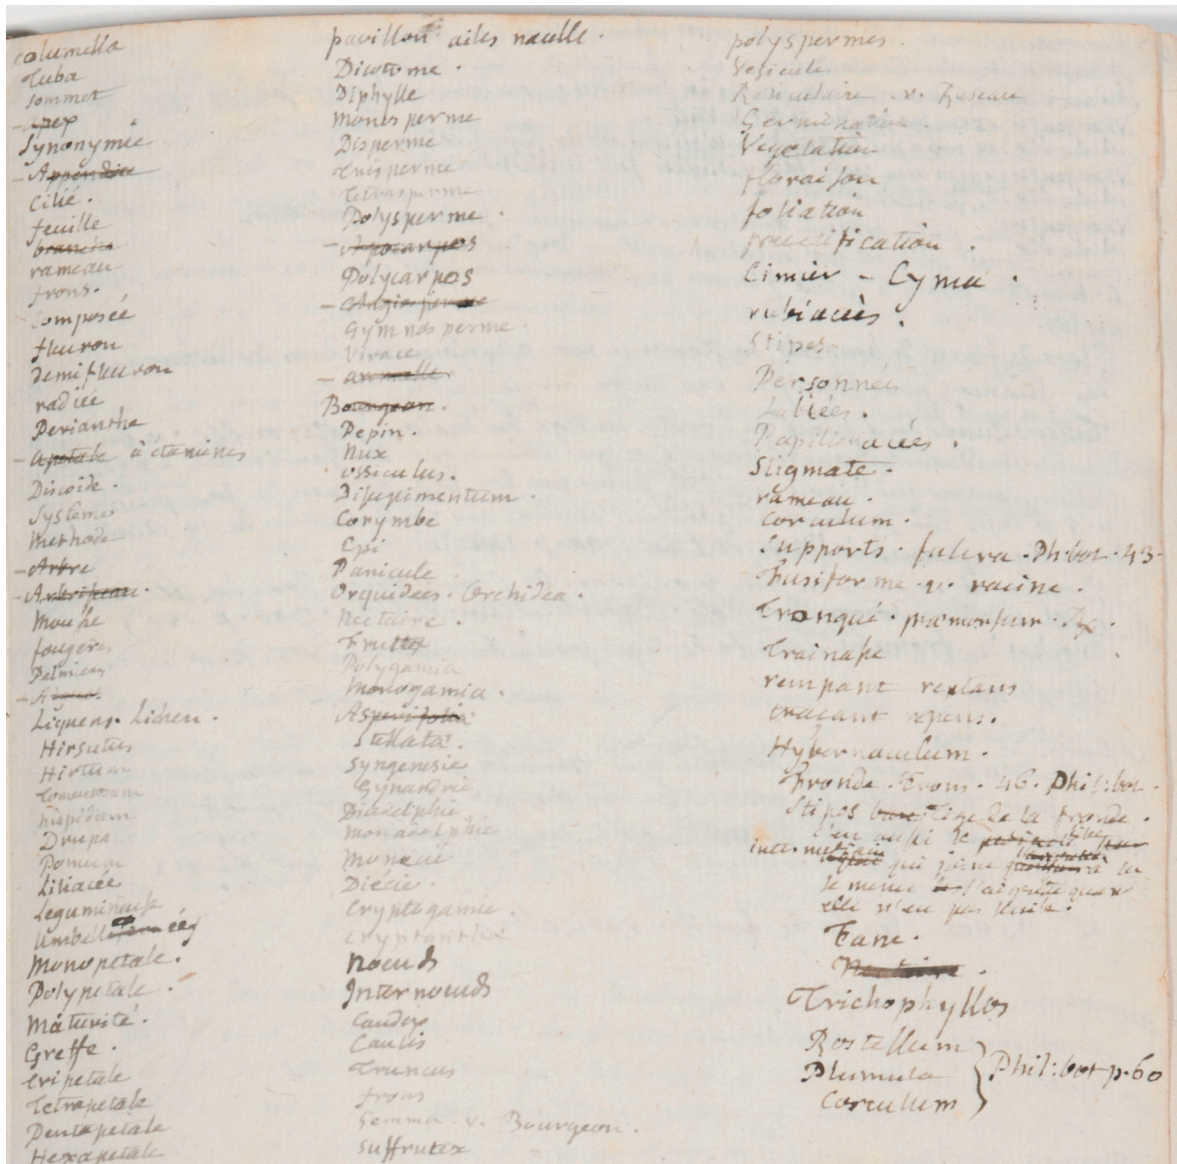 columella
Tuba
sommet
- apex
Synonymie
- Appendice
Cilié.
feuille
branche
rameau
frons.
Composée
fleuron
demifleuron
radiée
Perianthe
- apetale à étamines
Discoïde.
Systeme
Methode
- Arbre
- Arbrisseau.
Mousse
fougeres
Palmiers
Liquens. Lichen.
Hirsutus
Hirtum
Tomentosum
hispidum
Drupa
Pomum
Liliacée
Leguminouse
Monopetale.
Polypetale.
Maturité.
Greffe.
tripetale
Tetrapetale
Pentapetale
Hexapetale
pavillon ailes nacelle.
Dicotome.
Diphylle
Monosperme
Disperme
trisperme
tetrasperme
Polysperme.
- Apocarpos
Polycarpos
- Angiosperme
Gymnosperme.
Vivace
Bourgeon.
Pepin.
Nux
ossiculus.
Dissepimentum.
Corymbe
Epi
Panicule
Orquidées. Orchidea.
Nectaire.
Frutex
Polygamia
Monogamia.
Asperifolia
Stellatæ.
Syngenesie
Gynandrie
Diadelphie
Monadelphie
Monœcie
Diécie.
Cryptogamie
Cryptantha
Nœuds
Internœuds
Caudex
Caulis
Truncus
frons
Gemma. v. Bourgeon.
Suffrutex
polyspermes.
Vesicule
Reticulaire. v. Reseau
Germination.
Vegetation
floraison
foliation
fructification.
Cimier - Cyma.
rubiacées.
Stipes
Personnées
Labiées.
Papilionacées.
Stigmate.
rameau.
corculum.
Supports. fulcra. Ph. bot. 43.
Fusiforme. v. racine.
Tronqué. præmorsum.
Trainasse
rempant reptans
traçant repens.
Hybernaculum.
Fronde. Frons. 46. Phil: bot.
Stipes base Tige de la fronde.
c'est aussi le
qui joint à la
semence l'aigrette quand
elle n'est pas sessile.
Fane.
Nectaire.
Trichophyllos
Rostellum
Plumula } Phil: bot p. 60
Corculum